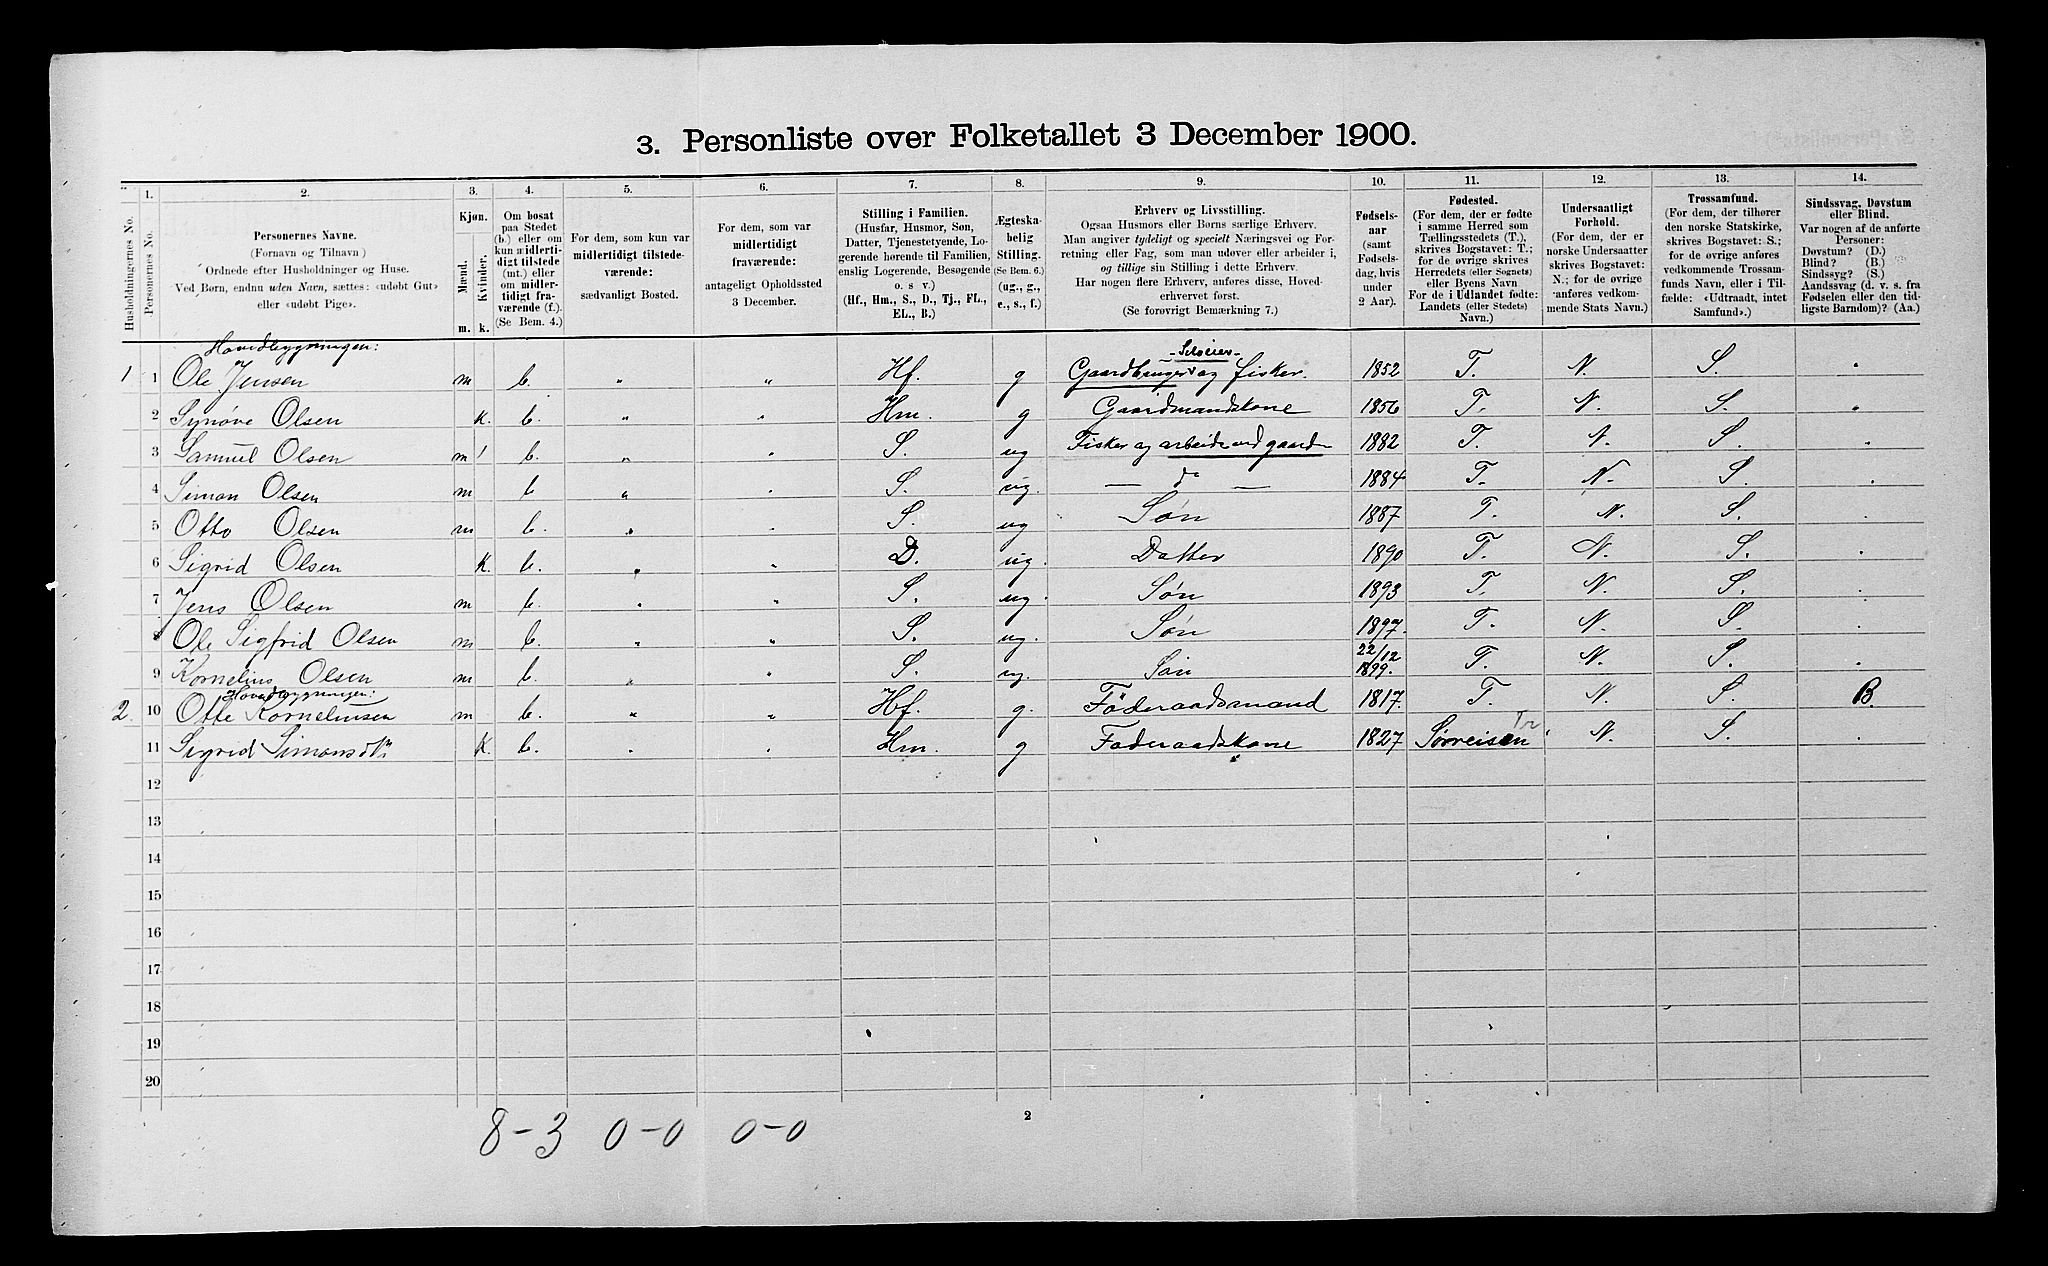 3. Personliste over Folketallet 3 December 1900.
Husholdningernes No.
1.
Personernes No.
2.
Personernes Navne.
(Fornavn og Tilnavn)
Ordnede efter Husholdninger og Huse.
Ved Børn, endnu uden Navn, sættes: «udøbt Gut»
eller «udøbt Pige».
3.
Kjøn.
Mænd.
Kvinder.
m.
k.
4.
Om bosat
paa Stedet
(b.) eller om
kun midlerti-
digt tilstede
(mt.) eller
om midler-
tidigt fra-
værende (f.).
(Se Bem. 4.)
5.
For dem, som kun var
midlertidigt tilstede-
værende:
sædvanligt Bosted.
6.
For dem, som var
midlertidigt
fraværende:
antageligt Opholdssted
3 December.
7.
Stilling i Familien.
(Husfar, Husmor, Søn,
Datter, Tjenestetyende, Lo-
gerende hørende til Familien,
enslig Logerende, Besøgende
o. s. v.)
(Hf., Hm., S., D., Tj., FL.,
EL., B.)
8.
Ægteska-
belig
Stilling.
(Se Bem. 6.)
(ug., g.,
e., s., f.)
9.
Erhverv og Livsstilling.
Ogsaa Husmors eller Børns særlige Erhverv.
Man angiver tydeligt og specielt Næringsvei og For-
retning eller Fag, som man udøver eller arbeider i,
og tillige sin Stilling i dette Erhverv.
Har nogen flere Erhverv, anføres disse, Hoved-
erhvervet først.
(Se forøvrigt Bemærkning 7.)
10.
Fødsels-
aar
(samt
Fødsels-
dag, hvis
under
2 Aar).
11.
Fødested.
(For dem, der er fødte
i samme Herred som
Tællingsstedets (T.),
skrives Bogstavet: T.;
for de øvrige skrives
Herredets (eller Sognets)
eller Byens Navn
For de i Udlandet fødte:
Landets (eller Stedets)
Navn.)
12.
Undersaatligt
Forhold.
(For dem, der er
norske Undersaatter
skrives Bogstavet:
N.; for de øvrige
anføres vedkom-
mende Stats Navn.)
13.
Trossamfund.
(For dem, der tilhører
den norske Statskirke,
skrives Bogstavet: S.;
for de øvrige anføres
vedkommende Trossam-
funds Navn, eller i Til-
fælde: «Udtraadt, intet
Samfund».)
14.
Sindssvag, Døvstum
eller Blind.
Var nogen af de anførte
Personer:
Døvstum? (D.)
Blind? (B.)
Sindssyg? (S.)
Aandssvag (d. v. s. fra
Fødselen eller den tid-
ligste Barndom)? (Aa.)
Hovedbygningen:
1 1 Ole Jensen m b. " " Hf. g Gaardbruger og fisker. -Selveier- 1852 T. N. S. "
2 Synøve Olsen k. b. " " Hm. g Gaardmandskone 1856 T. N. S. "
3 Samuel Olsen m b. " " S. ug Fisker og arbeide ved gaarde 1882 T. N. S. "
4 Simon Olsen m b " " S. ug. — do — 1884 T. N. S. "
5 Otto Olsen m b. " " S. ug Søn 1887 T. N. S. "
6 Sigrid Olsen K. b. " " D. ug. Datter 1890 T. N. S. "
7 Jens Olsen m b. " " S. ug. Søn 1893 T. N. S. "
8 Ole Sigfrid Olsen m b. " " S. ug. Søn 1897. T. N. S. "
9 Kornelius Olsen m b. " " S. ug. Søn 22/12 1899. T. N. S. "
Hovedbygningen:
2. 10 Otte Korneliussen m b. " " Hf. g. Föderaadsmand 1817. T. N. S. B.
11 Sigrid Simonsdtr K. b. " " Hm. g Foderaadskone 1827 Sørreisen Tr N. S. "
12
13
14
15
16
17
18
19
20
8-3 0-0 0-0
2